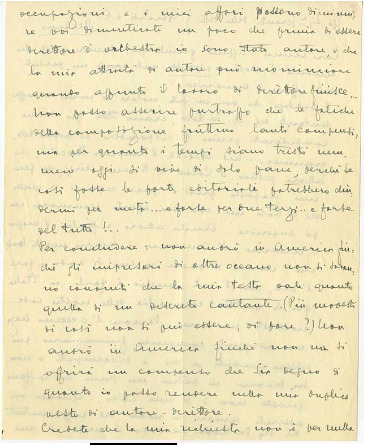 occupazioni e i miei affari possono diminui
re voi dimenticate un poco che prima di essere
direttore d'orchestra io sono stato autore e che
la mia attività di autore può incominciare
quando appunto il lavoro di direttore finisce...
Non posso asserire purtroppo che le fatiche
della composizione fruttino tanti compensi,
ma per quanto i tempi siano tristi nem
meno oggi si vive di solo pane, perché se
così fosse le porte editoriali potrebbero chiu
dermi per metà... e forse per due terzi... e forse
del tutto!...
Per concludere: non andrò in America fin
ché gli impresari di oltre oceano non si saran
no convinti che la mia testa vale quanto
quella di un discreto cantante. (Più modesti
di così non si può essere, vi pare?) Non
andrò in America finché non mi si
offrirà un compenso che sia degno di
quanto io posso rendere nella mia duplice
veste di autore-direttore.
Credete che la mia richiesta non è per nulla